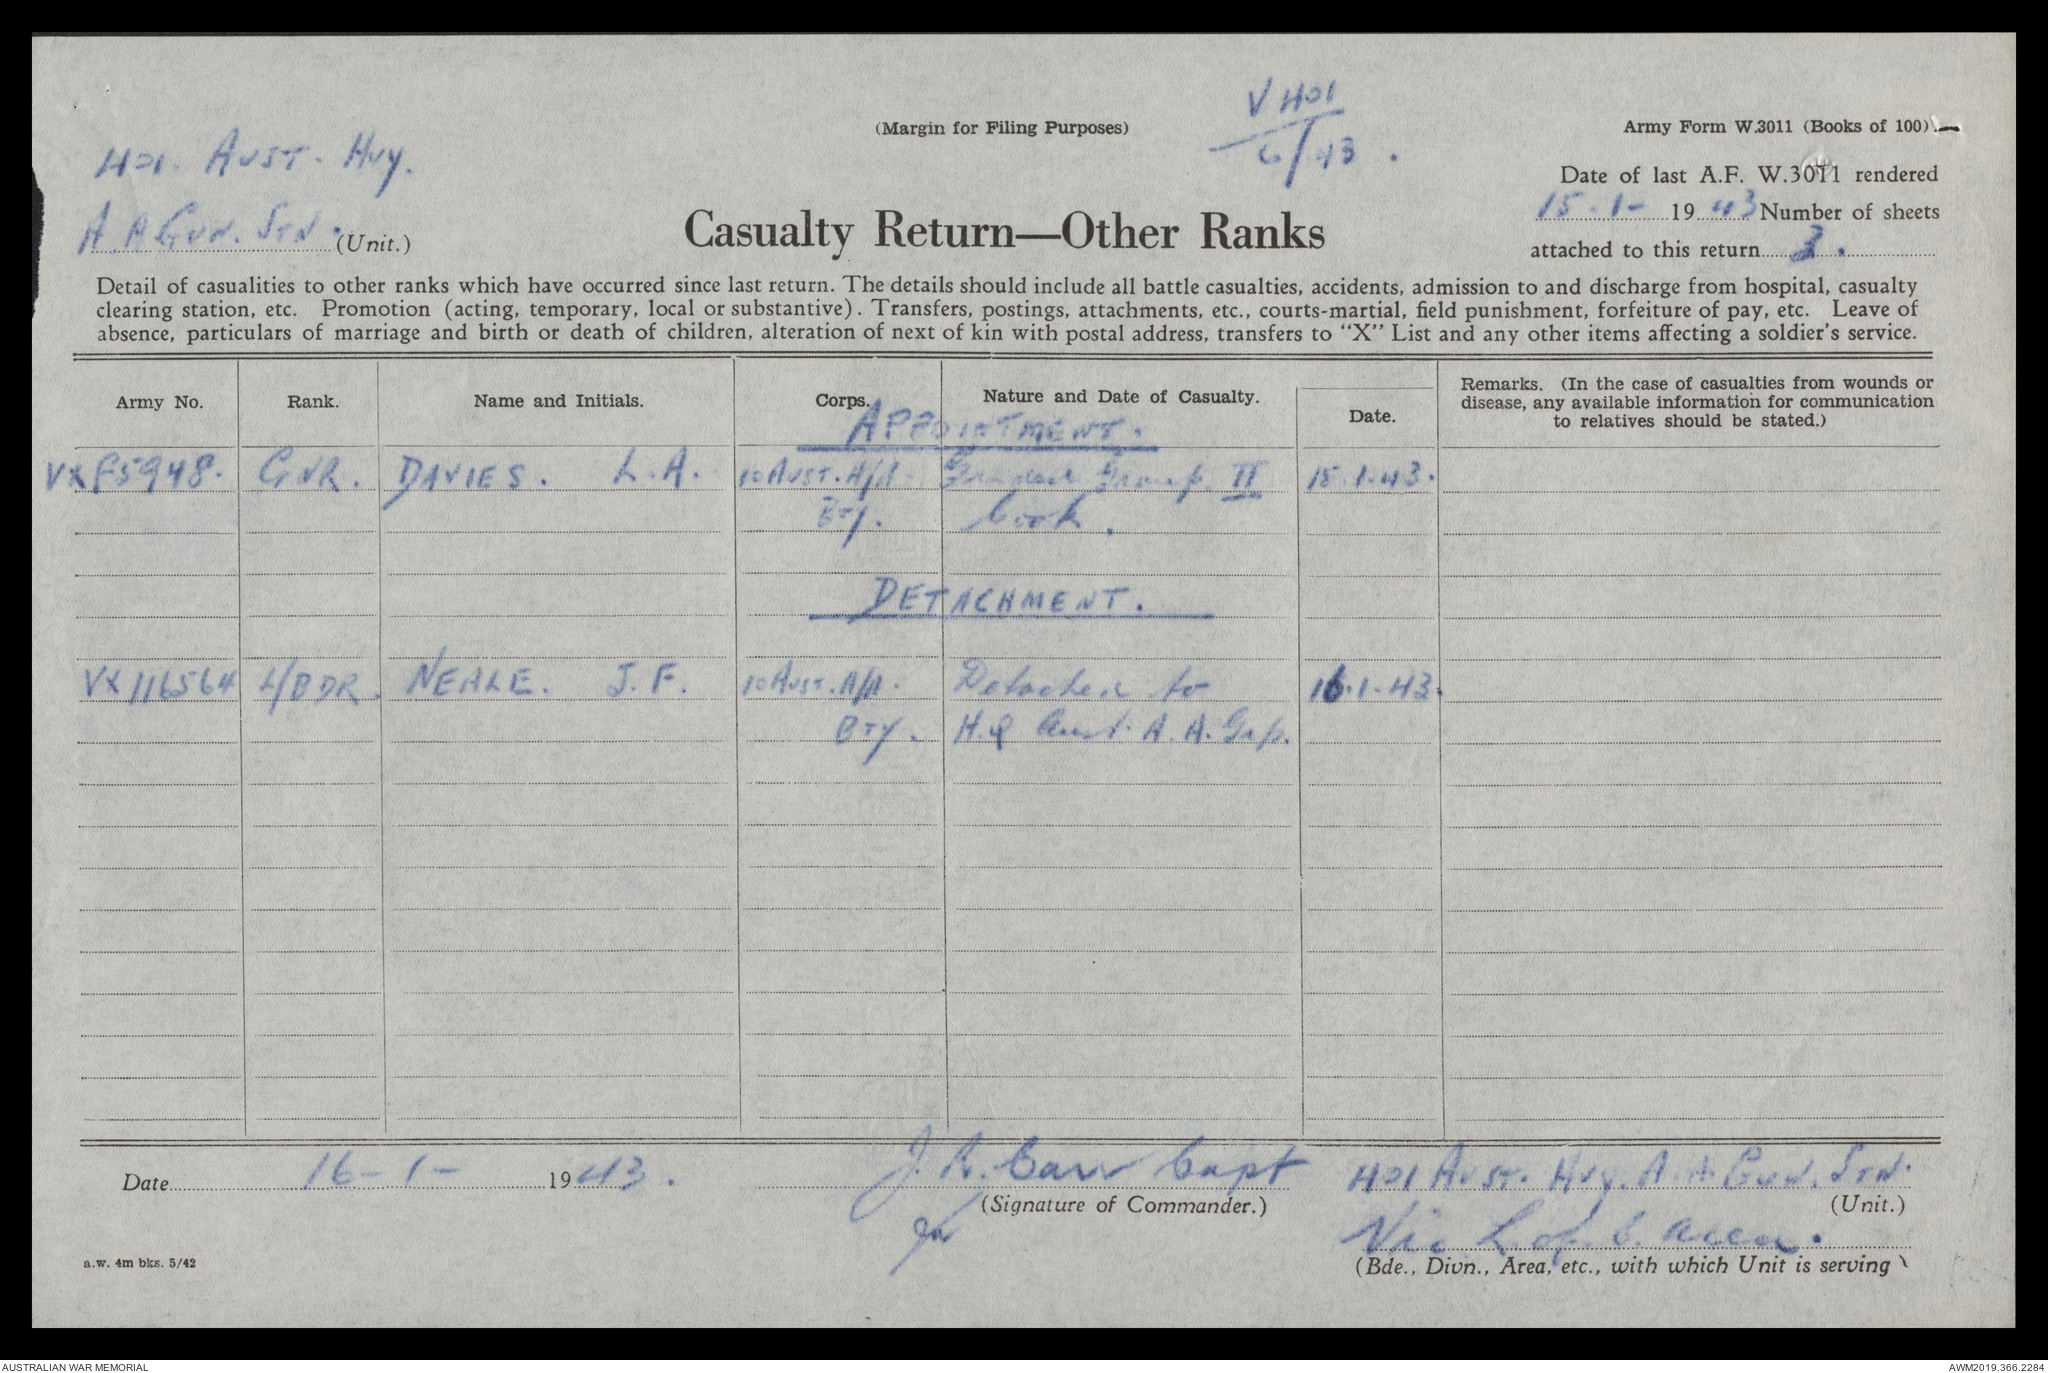 V 401
6/43.
(Margin for Filing Purposes)
Army Form W.3011 (Books of 100)
401. AUST. HVY.
A A GUN. STN. (Unit.)
Casualty Return—Other Ranks
Date of last A.F. W.3011 rendered
15-1- 1943 Number of sheets
attached to this return 3.
Detail of casualities to other ranks which have occurred since last return. The details should include all battle casualties, accidents, admission to and discharge from hospital, casualty
clearing station, etc. Promotion (acting, temporary, local or substantive). Transfers, postings, attachments, etc., courts-martial, field punishment, forfeiture of pay, etc. Leave of
absence, particulars of marriage and birth or death of children, alteration of next of kin with postal address, transfers to "X" List and any other items affecting a soldier's service.
Army No. Rank. Name and Initials. Corps. Nature and Date of Casualty. Date. Remarks. (In the case of casualties from wounds or
disease, any available information for communication
to relatives should be stated.)
APPOINTMENT.
VX85948. GNR. DAVIES. L.A. 10 AUST. A/A. Group II 15.1.43.
BTY. Cook.
DETACHMENT.
VX116564 L/BDR. NEALE. J.F. 10 AUST. A/A. Detached to 16.1.43.
BTY. H.Q Aust. A.A. Grp.
Date 16-1- 1943. J.R. Carr Capt 401 AUST. HVY. A.A GUN. STN.
(Signature of Commander.) (Unit.)
for Vic. L. of C. Area.
a.w. 4m bks. 5/42 (Bde., Divn., Area, etc., with which Unit is serving)
AUSTRALIAN WAR MEMORIAL AWM2019.366.2284